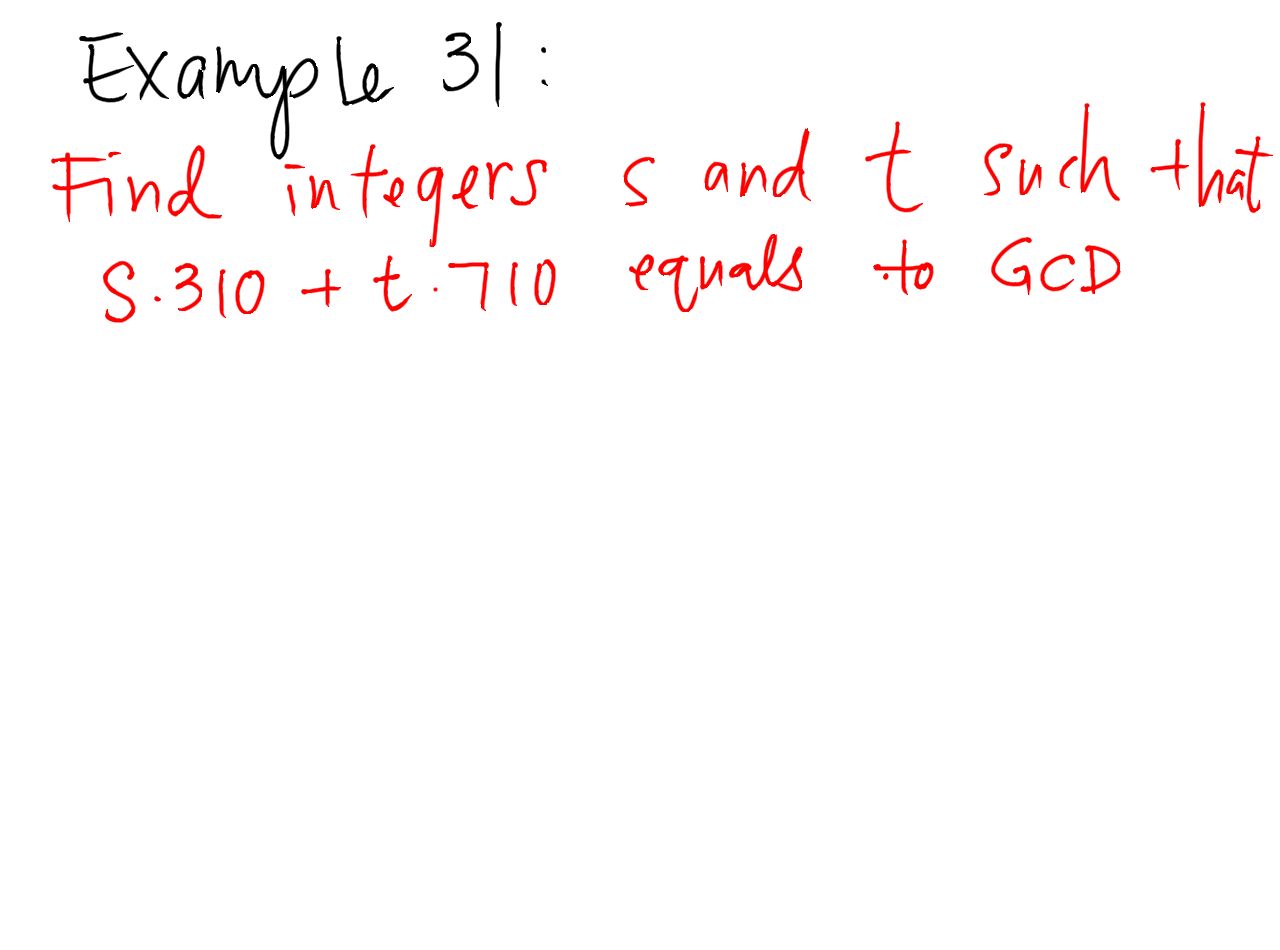 Example 31:
Find integers s and t such that
S.310 + t.710 equals to GCD